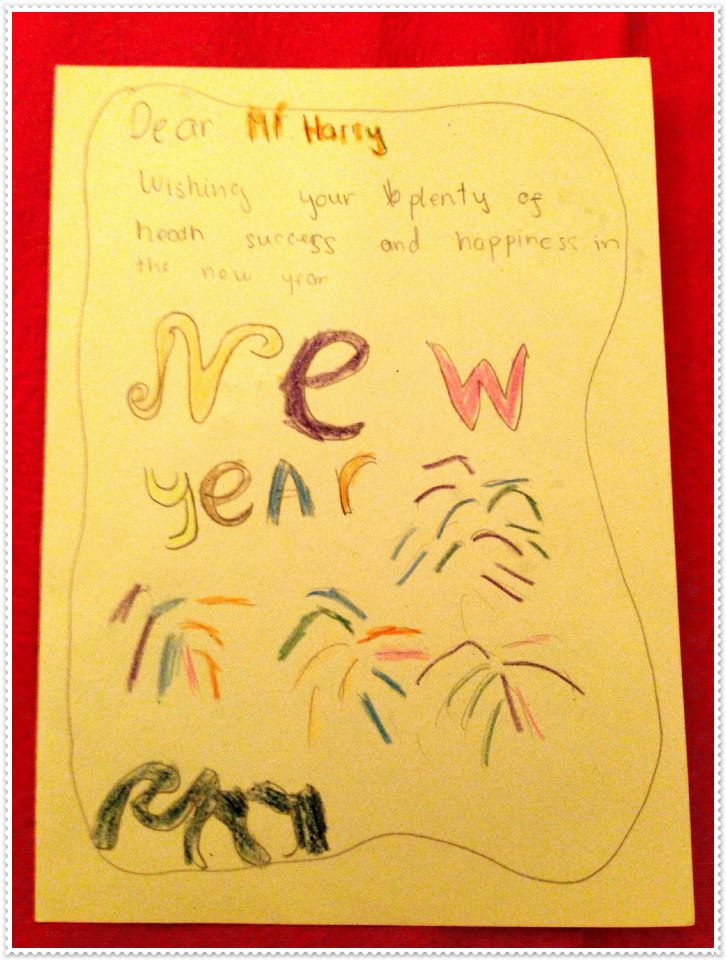 Dear Mr Harry
Wishing your plenty of
heath success and happiness in
the new year
New
year